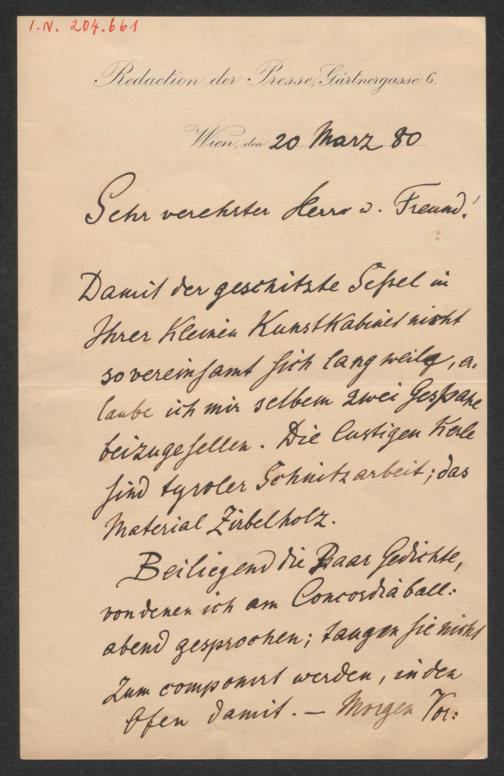 I.N. 204.661
Redaction der Presse, Gärtnergasse 6.
Wien, den 20 März 80
Sehr verehrter Herr u. Freund!
Damit der geschitzte Sessel in
Ihrer Kleinen Kunstkabinet nicht
so vereinsamt sich langweile, er-
laube ich mir selbem zwei Gespane
beizugesellen. Die lustigen Kerle
sind tyroler Schnitzarbeit; das
Material Zirbelholz.
Beiliegend die Paar Gedichte,
von denen ich am Concordiaball-
abend gesprochen; taugen sie nicht
zum componirt werden, in den
Ofen damit. — Morgen Vor: